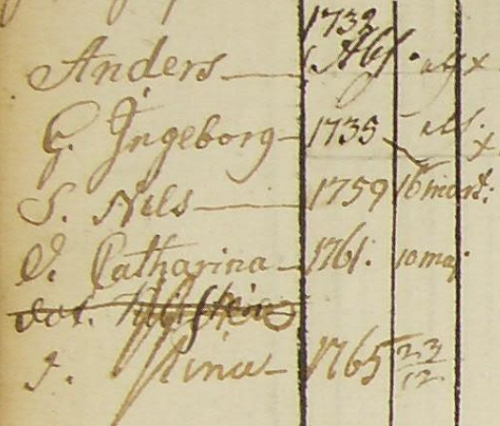 1732
Anders
G. Ingeborg 1735
S. Nils 1759 16 mart.
D. Catharina 1761. 10 maj
dot.
Stina 1765 23/12